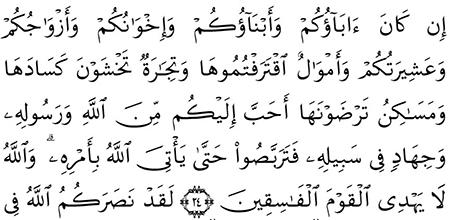 إِن كَانَ ءَابَآؤُكُمْ وَأَبْنَآؤُكُمْ وَإِخْوَٰنُكُمْ وَأَزْوَٰجُكُمْ
وَعَشِيرَتُكُمْ وَأَمْوَٰلٌ ٱقْتَرَفْتُمُوهَا وَتِجَٰرَةٌ تَخْشَوْنَ كَسَادَهَا
وَمَسَٰكِنُ تَرْضَوْنَهَآ أَحَبَّ إِلَيْكُم مِّنَ ٱللَّهِ وَرَسُولِهِۦ
وَجِهَادٍ فِى سَبِيلِهِۦ فَتَرَبَّصُوا۟ حَتَّىٰ يَأْتِىَ ٱللَّهُ بِأَمْرِهِۦ ۗ وَٱللَّهُ
لَا يَهْدِى ٱلْقَوْمَ ٱلْفَٰسِقِينَ ﴿٢٤﴾ لَقَدْ نَصَرَكُمُ ٱللَّهُ فِى